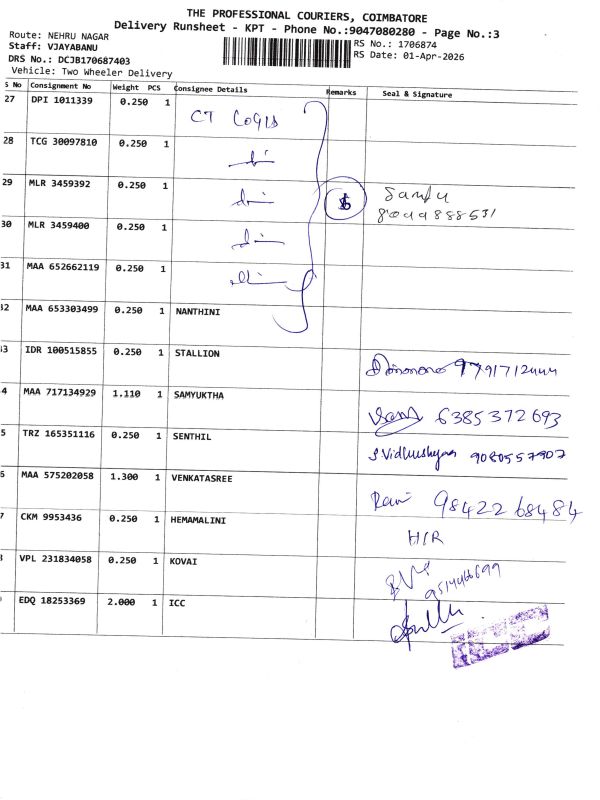 THE PROFESSIONAL COURIERS, COIMBATORE
Delivery Runsheet - KPT - Phone No.:9047080280 - Page No.:3
Route: NEHRU NAGAR
Staff: VJAYABANU
DRS No.: DCJB170687403
Vehicle: Two Wheeler Delivery
RS No.: 1706874
RS Date: 01-Apr-2026
S No Consignment No Weight PCS Consignee Details Remarks Seal & Signature
27 DPI 1011339 0.250 1 CT Logis
28 TCG 30097810 0.250 1
29 MLR 3459392 0.250 1
30 MLR 3459400 0.250 1
31 MAA 652662119 0.250 1
32 MAA 653303499 0.250 1 NANTHINI
33 IDR 100515855 0.250 1 STALLION
4 MAA 717134929 1.110 1 SAMYUKTHA 6385372693
5 TRZ 165351116 0.250 1 SENTHIL 9080557907
6 MAA 575202058 1.300 1 VENKATASREE Ravi 9842268484
7 CKM 9953436 0.250 1 HEMAMALINI H/R
VPL 231834058 0.250 1 KOVAI
EDQ 18253369 2.000 1 ICC